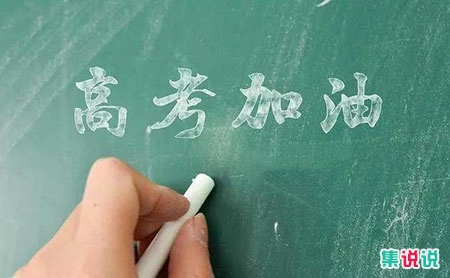 高考加油
集说说